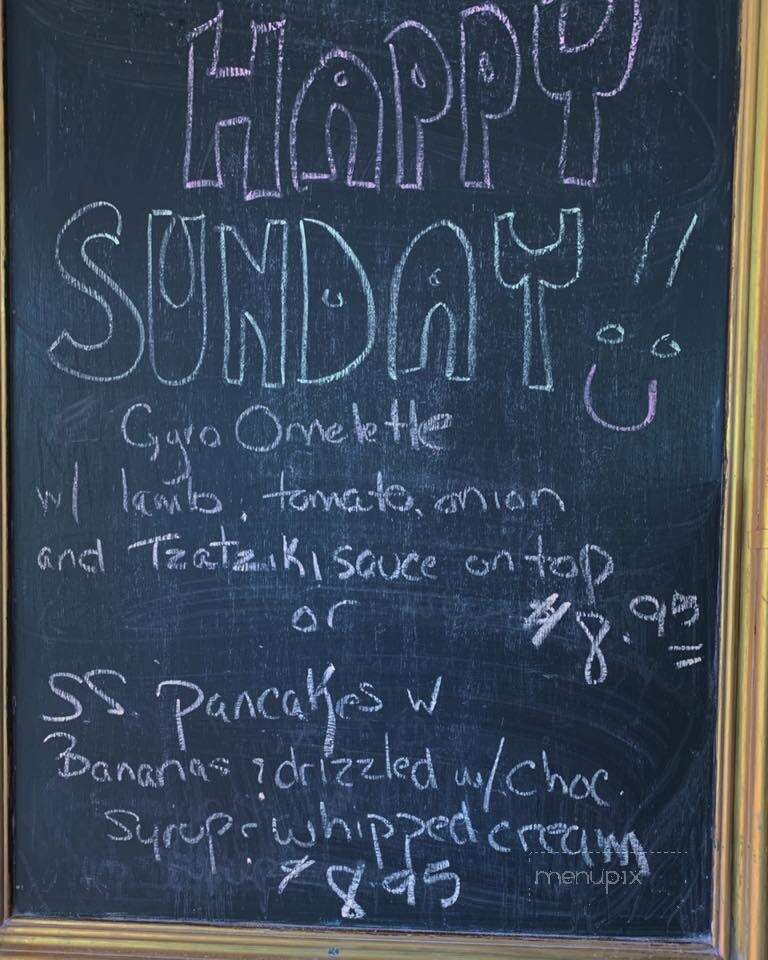 HAPPY
SUNDAY !!
Gyro Omelette
w/ lamb, tomato, onion
and Tzatziki sauce on top
or $8.95
SS Pancakes w
Bananas & drizzled w/ choc.
Syrup - whipped cream
menupix
$8.95